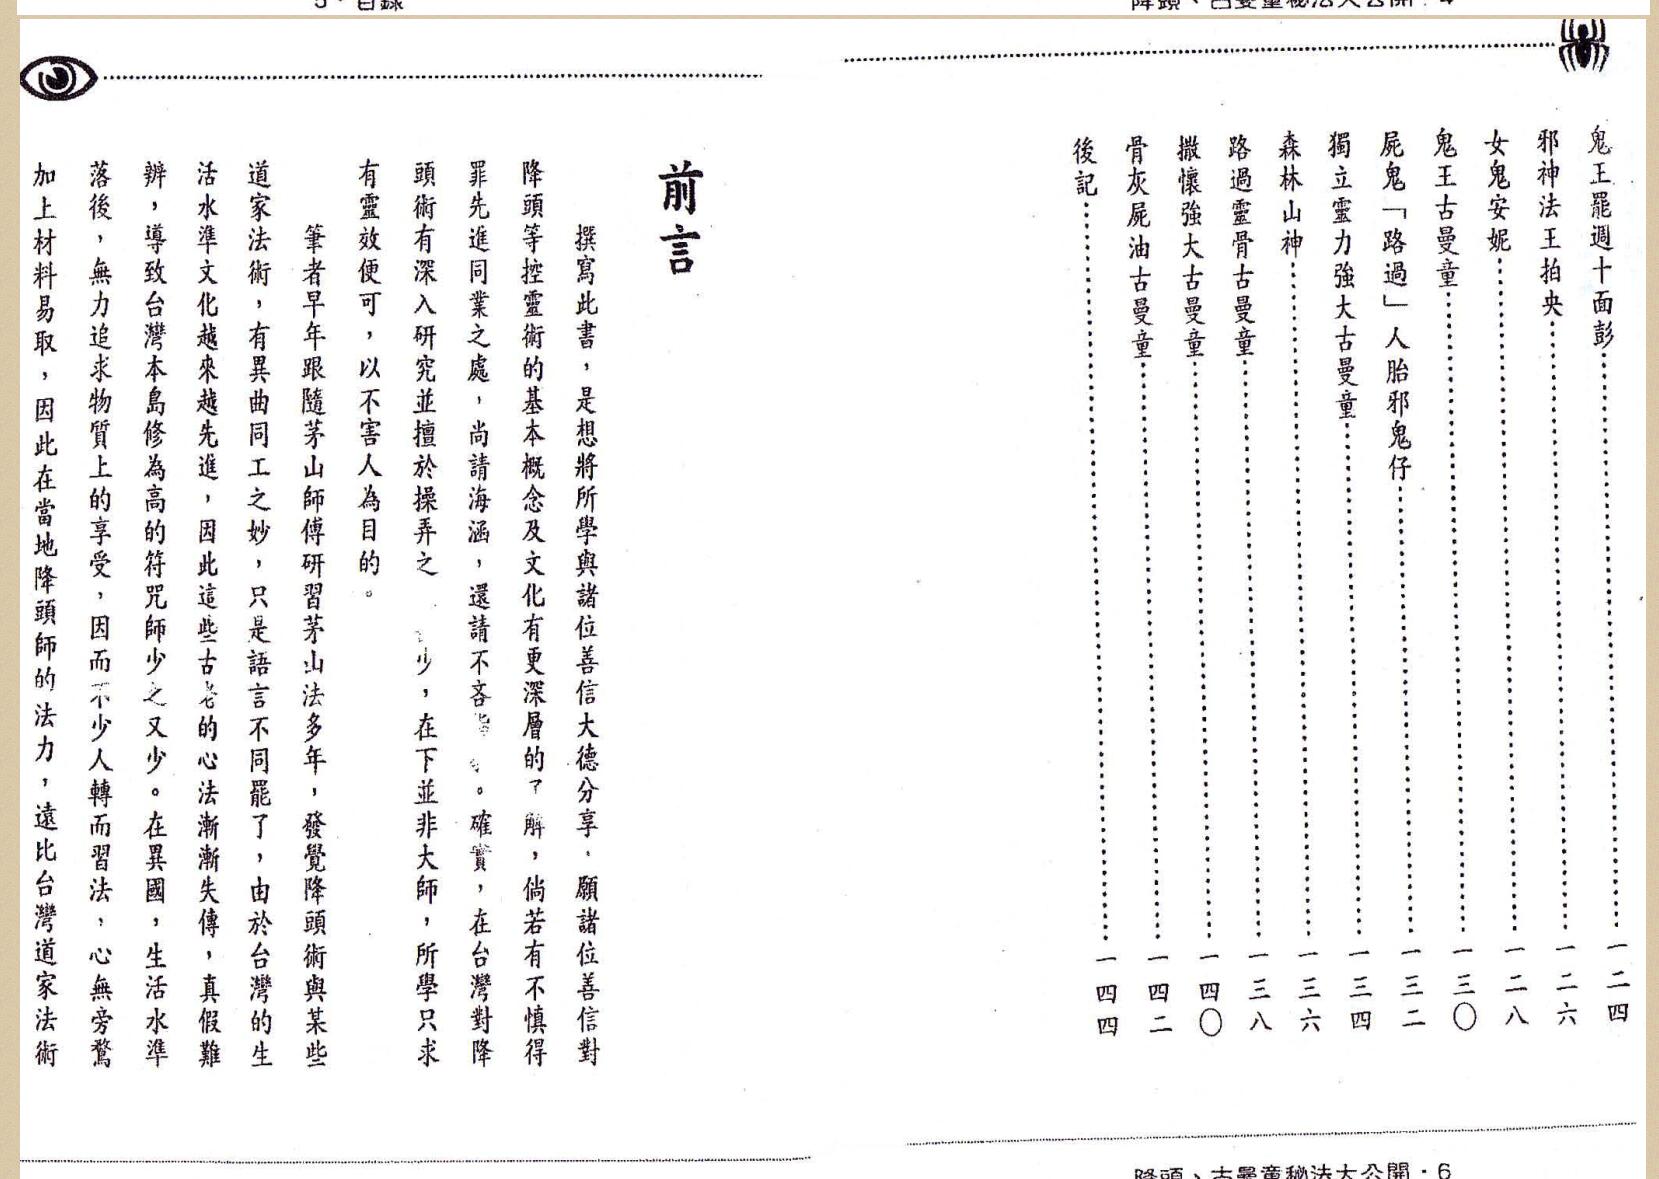 5．目錄
降頭、古曼童秘法大公開．4
鬼王罷週十面彭……一二四
邪神法王拍央……一二六
女鬼安妮……一二八
鬼王古曼童……一三〇
屍鬼「路過」人胎邪鬼仔……一三二
獨立靈力強大古曼童……一三四
森林山神……一三六
路過靈骨古曼童……一三八
撒懷強大古曼童……一四〇
骨灰屍油古曼童……一四二
後記……一四四
降頭、古曼童秘法大公開．6
前言
撰寫此書，是想將所學與諸位善信大德分享，願諸位善信對
降頭等控靈術的基本概念及文化有更深層的了解，倘若有不慎得
罪先進同業之處，尚請海涵，還請不吝。確實，在台灣對降
頭術有深入研究並擅於操弄之少，在下並非大師，所學只求
有靈效便可，以不害人為目的。
筆者早年跟隨茅山師傅研習茅山法多年，發覺降頭術與某些
道家法術，有異曲同工之妙，只是語言不同罷了，由於台灣的生
活水準文化越來越先進，因此這些古老的心法漸漸失傳，真假難
辨，導致台灣本島修為高的符咒師少之又少。在異國，生活水準
落後，無力追求物質上的享受，因而不少人轉而習法，心無旁騖
加上材料易取，因此在當地降頭師的法力，遠比台灣道家法術